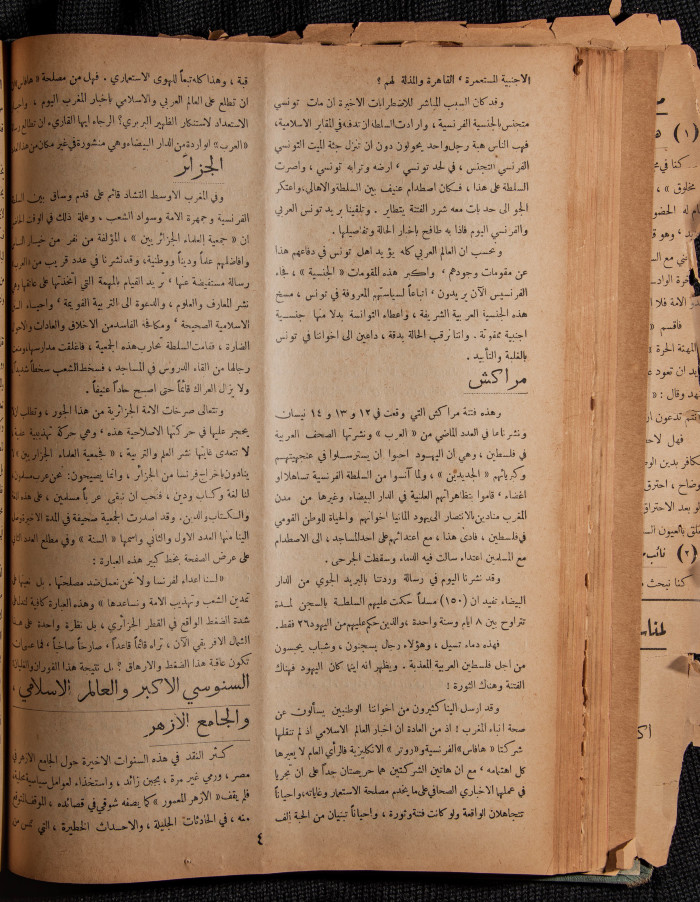 الاجنبية المستعمرة ، القاهرة والمذلة لهم ؟
وقد كان السبب المباشر للاضطرابات الاخيرة ان مات تونسي
متجنس بالجنسية الفرنسية ، وارادت السلطه ان تدفنه في المقابر الاسلامية،
فهب الناس هبة رجل واحد يحولون دون ان تنزل جثة الميت التونسي
الفرنسي التجنس ، في لحد تونسي ، ارضه وترابه تونسي ، واصرت
السلطة على هذا ، فكان اصطدام عنيف بين السلطة والاهالي، واعتكر
الجو الى حد بات معه شرر الفتنة يتطاير . وتلقينا بريد تونس العربي
والفرنسي اليوم فاذا به طافح باخبار الحالة وتفاصيلها .
ونحسب ان العالم العربي كله يؤيد اهل تونس في دفاعهم هذا
عن مقومات وجودهم ، واكبر هذه المقومات « الجنسية » ، فجاء
الفرنسيس الآن يريدون ، اتباعاً لسياستهم المعروفة في تونس ، مسخ
هذه الجنسية العربية الشريفة ، واعطاء التوانسة بدلا منها جنسية
اجنبية ممقوتة . واننا نرقب الحالة بدقة ، داعين الى اخواننا في تونس
بالغلبة والتأييد .
مراكش
وهذه فتنة مراكش التي وقعت في ١٢ و ١٣ و ١٤ نيسان
ونشرناها في العدد الماضي من « العرب » ونشرتها الصحف العربية
في فلسطين ، وهي ان اليهود احبوا ان يسترسلوا في عنجهيتهم
وكبريائهم « الجديدين » ، ولما آنسوا من السلطة الفرنسية تساهلا او
اغضاء ، قاموا بتظاهراتهم العلنية في الدار البيضاء وغيرها من مدن
المغرب منادين بالانتصار الى يهود المانيا اخوانهم والحياة للوطن القومي
في فلسطين ، فأدى هذا ، مع اعتدائهم على احد المساجد ، الى الاصطدام
مع المسلمين اعتداء سالت فيه الدماء وسقطت الجرحى .
وقد نشرنا اليوم في رسالة وردتنا بالبريد الجوي من الدار
البيضاء تفيد ان (١٥٠) مسلماً حكت عليهم السلطة بالسجن لمدة
تتراوح بين ٨ ايام وسنة واحدة ، والذين حكم عليهم من اليهود ٢٦ فقط.
فهذه دماء تسيل ، وهؤلاء رجال يسجنون ، وشباب يحبسون
من اجل فلسطين العربية المعذبة . ويظهر انه اينما كان اليهود فهناك
الفتنة وهناك الثورة !
وقد ارسل الينا كثيرون من اخواننا الوطنيين يسألون عن
صحة انباء المغرب ! اذ من العادة ان اخبار العالم الاسلامي اذ لم تنقلها
شركتا « هافاس » الفرنسية و « روتر » الانكليزية فالرأي العام لا يعيرها
كل اهتمامه ، مع ان هاتين الشركتين هما حريصتان جداً على ان تجريا
في عملهما الاخباري الصحافي على ما يخدم مصلحة الاستعمار وغاياته، واحياناً
تتجاهلان الواقعة ولو كانت فتنة وثورة ، واحياناً تبنيان من الحبة الف
قبة ، وهذا كله تبعاً للهوى الاستعماري . فهل من مصلحة « هافاس »
ان تطلع على العالم العربي والاسلامي باخبار المغرب اليوم ،
الاستعداد لاستنكار الظهير البربري؟ الرجاء ايها القاريء ان تطالع
« العرب » الواردة من الدار البيضاء وهي منشورة في غير مكان من هذا
الجزائر
وفي المغرب الاوسط التشاد قائم على قدم وساق بين
الفرنسية وجمهرة الامة وسواد الشعب . وعلة ذلك في الوقت
ان « جمعية العلماء الجزائريين » ، المؤلفة من نفر من خيار
وافاضلهم علماً وديناً ووطنية، وقد نشرنا في عدد قريب من
رسالة مستفيضة عنها ، تريد القيام بالمهمة التي اتخذتها على عاتقها
نشر المعارف والعلوم ، والدعوة الى التربية القويمة ، واحياء
الاسلامية الصحيحة ، ومكافحة الفاسد من الاخلاق والعادات
الضارة ، فقامت السلطة تحارب هذه الجمعية ، فاغلقت مدارسها
رجالها من القاء الدروس في المساجد ، فسخط الشعب سخطاً
ولا يزال العراك قائماً حتى اصبح حاداً عنيفاً .
وتتعالى صرخات الامة الجزائرية من هذا الجور ، وتطلب
يحجر عليها في حركتها الاصلاحية هذه ، وهي حركة تهذيبية
لا تتعدى غايتها نشر العلم والتربية ، « فجمعية العلماء الجزائريين »
ينادون باخراج فرنسا من الجزائر ، وانما يصيحون: نحن عرب مسلمون
لنا لغة وكتاب ودين ، فنحب ان نبقى عرباً مسلمين ، على هذه
والكتاب والدين. وقد اصدرت الجمعية صحيفة في المدة الاخيرة
الينا منها العدد الاول والثاني واسمها « السنة » وفي مطلع العدد
على عرض الصفحة بخط كبير هذه العبارة :
« لسنا اعداء لفرنسا ولا نحن نعمل ضد مصلحتها . بل
تمدين الشعب وتهذيب الامة ونساعدها » وهذه العبارة كافية
شدة الضغط الواقع في القطر الجزائري ، بل نظارة واحدة على
الشمال الافريقي الآن ، تراه قائماً قاعداً ، صارخاً صاخباً ، فما عسى
تكون عاقبة هذا الضغط والارهاق ؟ بل نتيجة هذا الفوران
السنوسي الاكبر والعالم الاسلامي ،
والجامع الازهر
كثر النقد في هذه السنوات الاخيرة حول الجامع الازهر في
مصر ، ورمي غير مرة ، بجبن زائد ، واستخذاء لعوامل سياسية
فلم يقف « الازهر المعمور » كما يصفه شوقي في قصائده ،
منه ، في الحادثات الجليلة ، والاحداث الخطيرة ، التي
٤